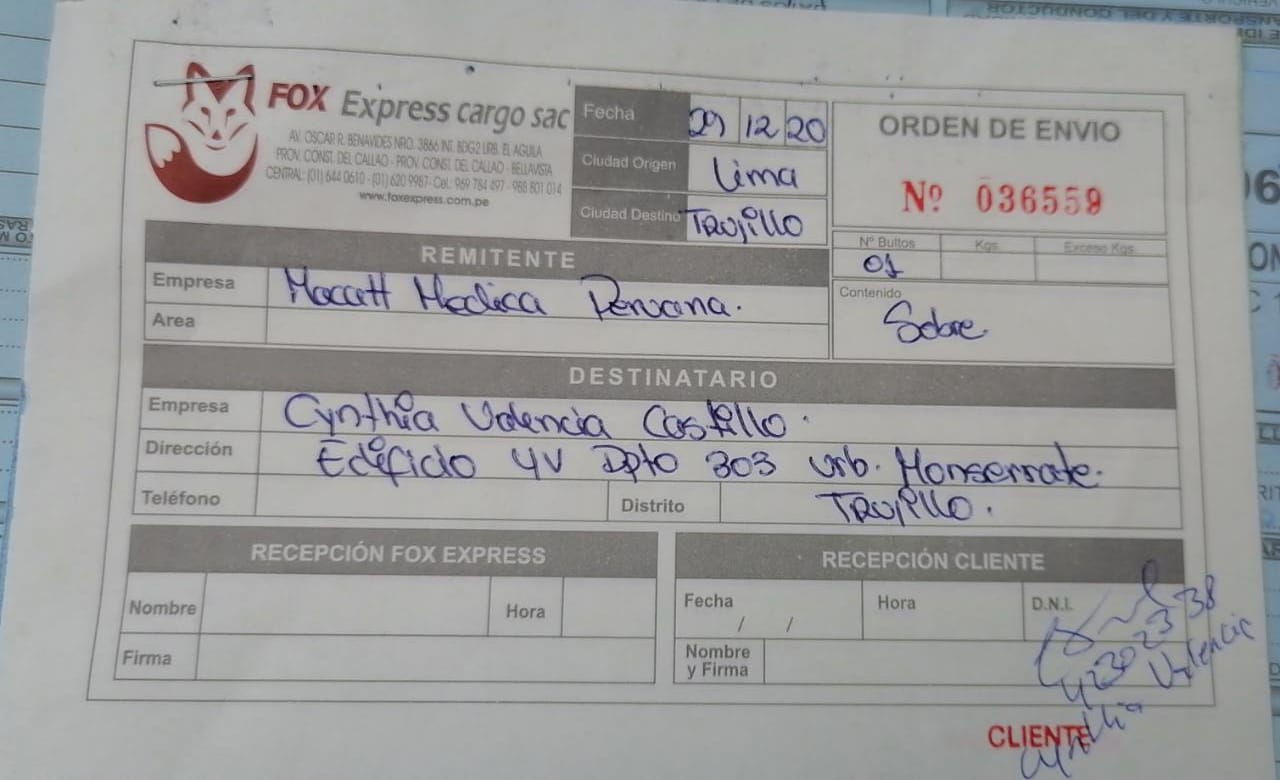 FOX Express cargo sac
AV. OSCAR R. BENAVIDES NRO. 3866 INT. BDG2 URB. EL AGUILA
PROV. CONST. DEL CALLAO - PROV. CONST. DEL CALLAO - BELLAVISTA
CENTRAL: (01) 644 0610 - (01) 620 9987 - Cel.: 969 784 497 - 988 801 014
www.foxexpress.com.pe
Fecha 29 12 20
Ciudad Origen Lima
Ciudad Destino Trujillo
ORDEN DE ENVIO
Nº 036559
Nº Bultos Kgs. Exceso Kgs.
01
Contenido
Sobre
REMITENTE
Empresa Maccatt Medica Peruana.
Area
DESTINATARIO
Empresa Cynthia Valencia Castillo.
Dirección Edificio 4V Dpto 303 Urb. Monserrate.
Teléfono Distrito Trujillo.
RECEPCIÓN FOX EXPRESS
Nombre Hora
Firma
RECEPCIÓN CLIENTE
Fecha / / Hora D.N.I.
Nombre
y Firma
42302338
Cynthia Valencia
CLIENTE